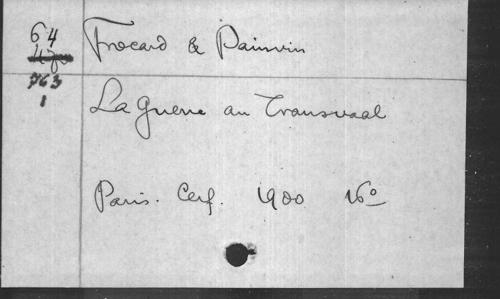 64
Frocard & Painvin
763
1
La Guerre au Transvaal
Paris. Cerf. 1900 16º